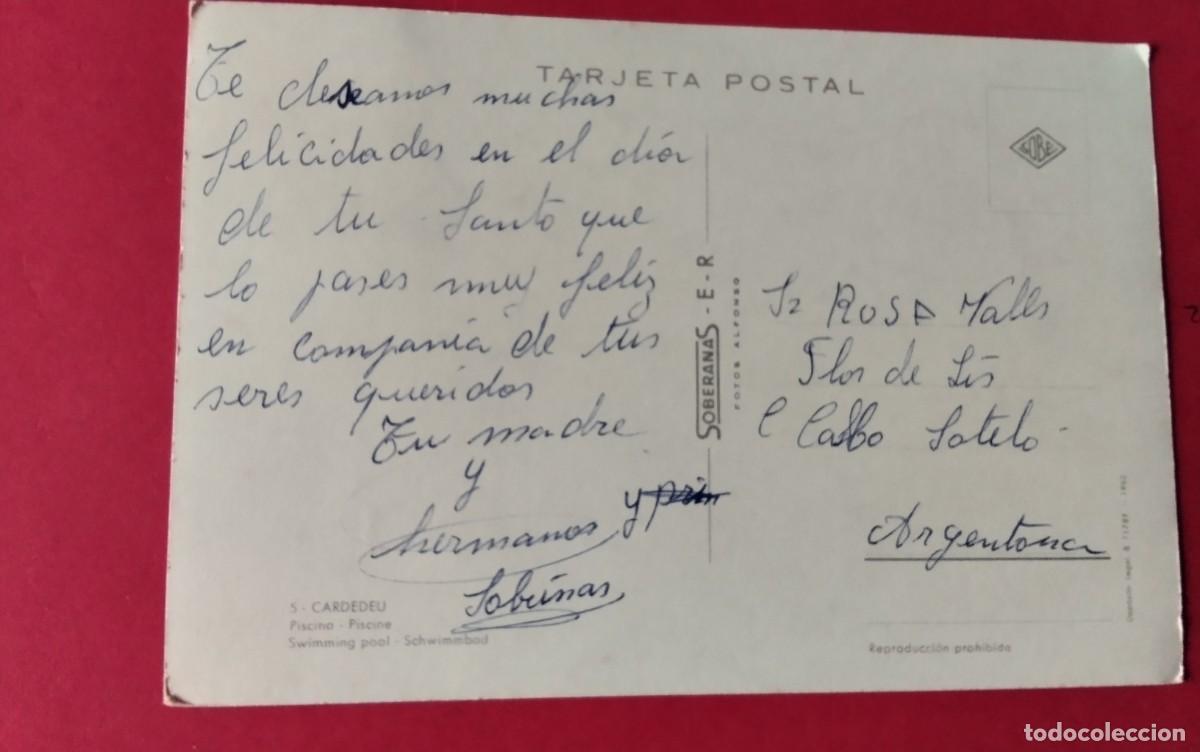 TARJETA POSTAL
Te deseamos muchas
felicidades en el día
de tu Santo que
lo pases muy feliz
en compania de tus
seres queridos
Tu madre
y
hermanos y prim
Sobrinas
5 - CARDEDEU
Piscina - Piscine
Swimming pool - Schwimmbad
SOBERANAS - E - R
FOTOS ALFONSO
SOBE
Sr ROSA Valls
Flor de Lis
C Calbo Sotelo
Argentona
Reproducción prohibida
Depósito legal B
1962
todocoleccion